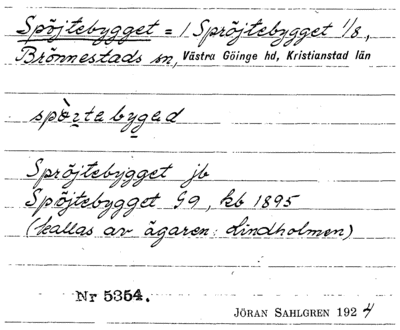 Spöjtebygget = 1 Spröjtebygget 1/8,
Brönnestads sn, Västra Göinge hd, Kristianstad län
spò̱rta byga̱d
Spröjtebygget jb
Spöjtebygget G9, kb 1895
(kallas av ägaren: Lindholmen)
Nr 5354.
JÖRAN SAHLGREN 1924